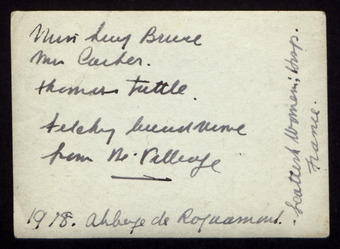 Miss Lucy Bruce
Mrs Carter.
Thomas Tuttle.
fetching
from the Village
1918. Abbaye de Royaumont.
Scottish Women's Hosp.
France.